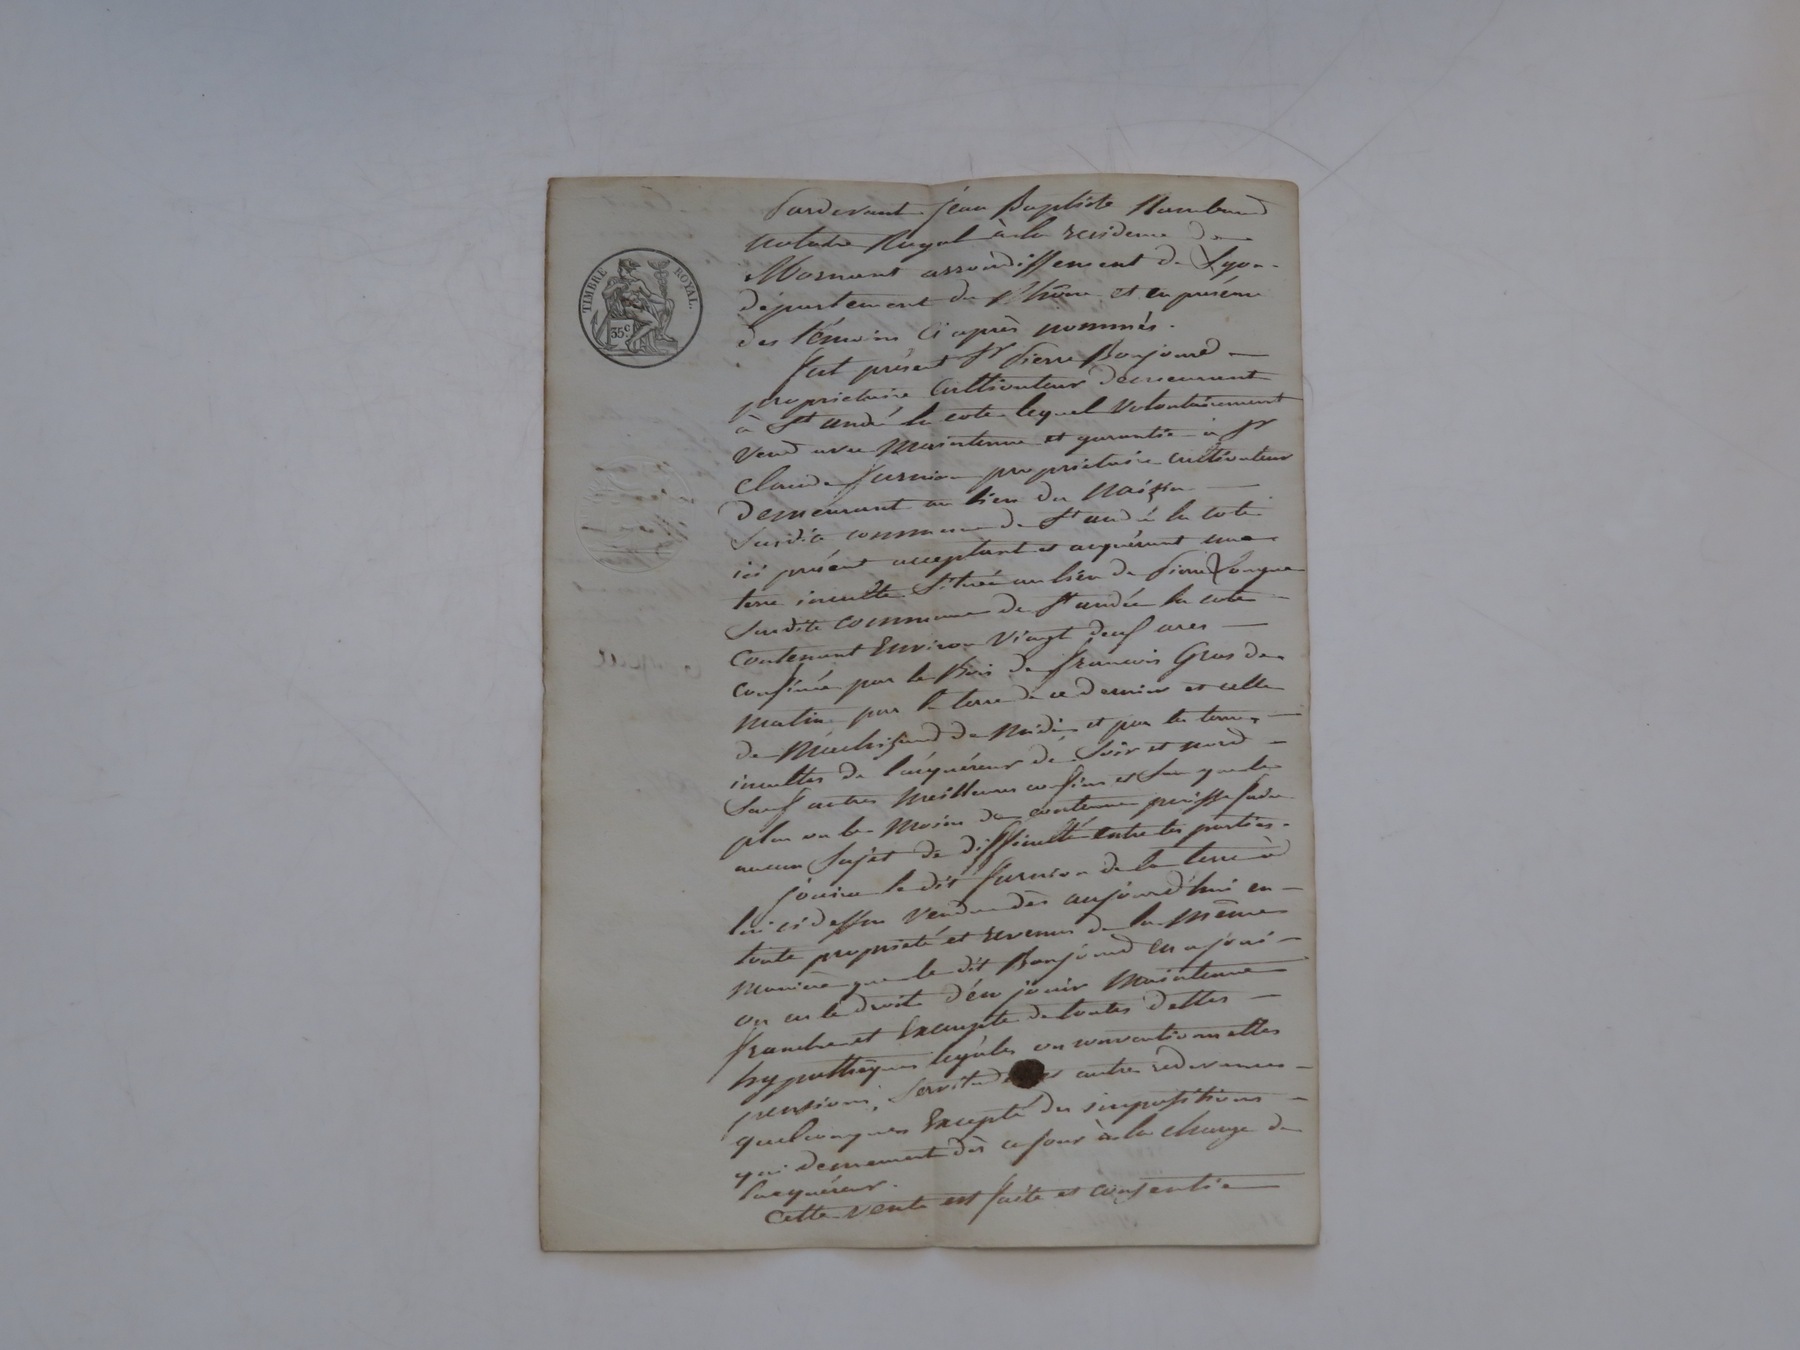 TIMBRE ROYAL.
35c
Pardevant jean Baptiste Rambaud
notaire Royal à la residence de
Mornant arrondissement de Lyon
departement du Rhône et en présence
des témoins ci après nommés.
fut présent Sr pierre Bonjour
proprietaire cultivateur demeurant
à St andré la cote lequel volontairement
vend avec Maintenue et garantie à Sr
Claude furnion proprietaire cultivateur
demeurant au lieu du
Susdite commune de St andré la cote
ici présent acceptant et acquérant une
terre inculte Située au lieu de pierre Longue
Susdite commune de St andré la cote
contenant Environ vingt deux ares
confinée par le Bois de françois Gros de
matin par la terre de ce dernier et celle
de de Midi et par les terres
incultes de l'acquéreur de Soir et nord
Sauf autres Meilleures confins et Sans que le
plus ou le Moins de contenue puisse faire
aucun Sujet de difficulté entre les parties.
jouira le dit furnion de la terre à
lui ci dessus vendue dès aujourd'hui en
toute propriété et revenus de la même
Manière que le dit Bonjour en a joui
ou eu le droit d'en jouir Maintenue
franche et Exempte de toutes dettes
hypothèques légales ou conventionnelles
pensions, Servitudes et autres redevances
quelconques Excepté des impositions
qui demeurent dès ce jour à la charge de
l'acquéreur.
Cette vente est faite et consentie